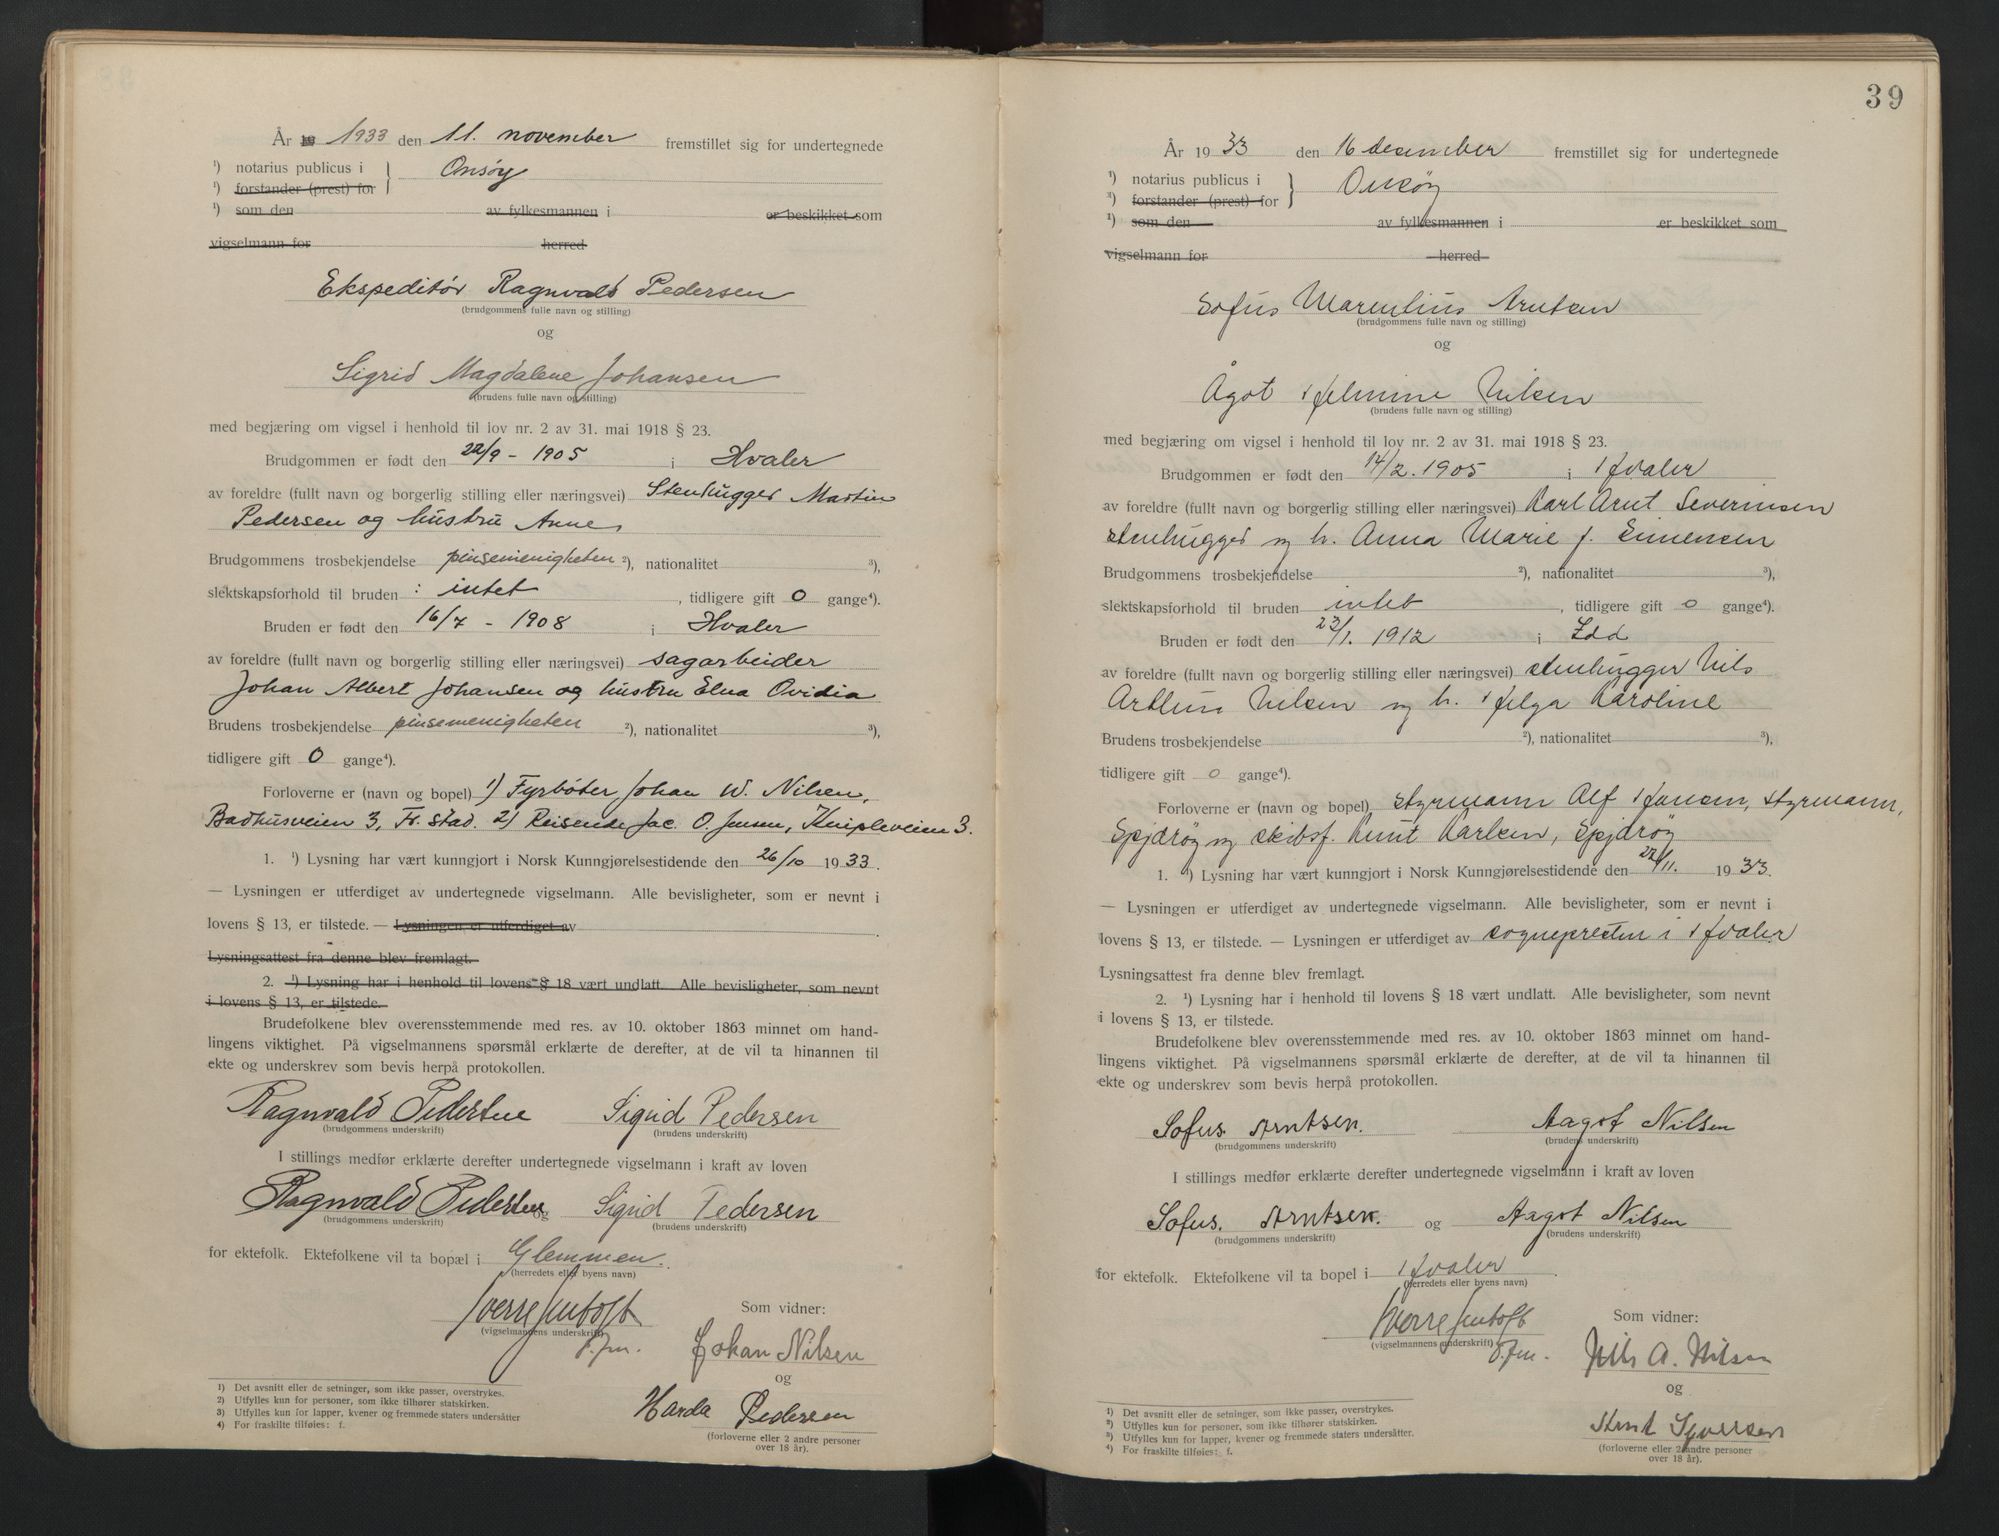 År 19 1933 den 11. november fremstillet sig for undertegnede
¹) notarius publicus i Onsøy
¹) forstander (prest) for
¹) som den av fylkesmannen i er beskikket som
vigselmann for herred
Ekspeditør Ragnvald Pedersen
(brudgommens fulle navn og stilling)
og
Sigrid Magdalene Johansen
(brudens fulle navn og stilling)
med begjæring om vigsel i henhold til lov nr. 2 av 31. mai 1918 § 23.
Brudgommen er født den 22/9 - 1905 i Hvaler
av foreldre (fullt navn og borgerlig stilling eller næringsvei) Stenhugger Martin
Pedersen og hustru Anne
Brudgommens trosbekjendelse pinsemenigheten ²), nationalitet ³),
slektskapsforhold til bruden : intet , tidligere gift 0 gange⁴).
Bruden er født den 16/7 - 1908 i Hvaler
av foreldre (fullt navn og borgerlig stilling eller næringsvei) sagarbeider
Johan Albert Johansen og hustru Elna Ovidia
Brudens trosbekjendelse pinsemenigheten ²), nationalitet ³),
tidligere gift 0 gange⁴).
Forloverne er (navn og bopel) 1) Fyrbøter Johan W. Nilsen,
Badhusveien 3, Fr.stad. 2) Reisende Jac. O. Jensen, Knipleveien 3.
1. ¹) Lysning har vært kunngjort i Norsk Kunngjørelsestidende den 26/10 1933.
— Lysningen er utferdiget av undertegnede vigselmann. Alle bevisligheter, som er nevnt i
lovens § 13, er tilstede. — Lysningen er utferdiget av
Lysningsattest fra denne blev fremlagt.
2. ¹) Lysning har i henhold til lovens § 18 vært undlatt. Alle bevisligheter, som nevnt
i lovens § 13, er tilstede.
Brudefolkene blev overensstemmende med res. av 10. oktober 1863 minnet om hand-
lingens viktighet. På vigselmannens spørsmål erklærte de derefter, at de vil ta hinannen til
ekte og underskrev som bevis herpå protokollen.
Ragnvald Pedersen Sigrid Pedersen
(brudgommens underskrift) (brudens underskrift)
I stillings medfør erklærte derefter undertegnede vigselmann i kraft av loven
Ragnvald Pedersen og Sigrid Pedersen
(brudgommens underskrift) (brudens underskrift)
for ektefolk. Ektefolkene vil ta bopæl i Glemmen.
(herredets eller byens navn)
Sverre Jentoft Som vidner:
(vigselmannens underskrift)
Johan Nilsen
og
Harda Pedersen
(forloverne eller 2 andre personer
over 18 år).
1) Det avsnitt eller de setninger, som ikke passer, overstrykes.
2) Utfylles kun for personer, som ikke tilhører statskirken.
3) Utfylles kun for lapper, kvener og fremmede staters undersåtter
4) For fraskilte tilføies: f.
39
År 1933 den 16 desember fremstillet sig for undertegnede
¹) notarius publicus i Onsøy
²) forstander (prest) for
¹) som den av fylkesmannen i er beskikket som
vigselmann for herred
Sofus Marenlius Arntsen
(brudgommens fulle navn og stilling)
og
Ågot Helmine Nilsen
(brudens fulle navn og stilling)
med begjæring om vigsel i henhold til lov nr. 2 av 31. mai 1918 § 23.
Brudgommen er født den 14/2. 1905 i Hvaler
av foreldre (fullt navn og borgerlig stilling eller næringsvei) Karl Arnt Severinsen
stenhugger og h. Anna Marie f. Simensen
Brudgommens trosbekjendelse ²), nationalitet ³),
slektskapsforhold til bruden intet , tidligere gift 0 gange⁴).
Bruden er født den 23/1. 1912 i Idd
av foreldre (fullt navn og borgerlig stilling eller næringsvei) stenhugger Nils
Artur Nilsen og h. Helga Karoline
Brudens trosbekjendelse ²), nationalitet ³),
tidligere gift 0 gange⁴).
Forloverne er (navn og bopel) styrmann Alf Hansen, styrmann,
Spjærøy og skibsf. Knut Karlsen, Spjærøy
1. ¹) Lysning har vært kunngjort i Norsk Kunngjørelsestidende den 22/11. 1933.
— Lysningen er utferdiget av undertegnede vigselmann. Alle bevisligheter, som er nevnt i
lovens § 13, er tilstede. — Lysningen er utferdiget av sognepresten i Hvaler
Lysningsattest fra denne blev fremlagt.
2. ¹) Lysning har i henhold til lovens § 18 vært undlatt. Alle bevisligheter, som nevnt
i lovens § 13, er tilstede.
Brudefolkene blev overensstemmende med res. av 10. oktober 1863 minnet om hand-
lingens viktighet. På vigselmannens spørsmål erklærte de derefter, at de vil ta hinannen til
ekte og underskrev som bevis herpå protokollen.
Sofus. Arntsen. Aagot Nilsen
(brudgommens underskrift) (brudens underskrift)
I stillings medfør erklærte derefter undertegnede vigselmann i kraft av loven
Sofus. Arntsen. og Aagot Nilsen
(brudgommens underskrift) (brudens underskrift)
for ektefolk. Ektefolkene vil ta bopel i Hvaler
(herredets eller byens navn)
Sverre Jentoft Som vidner:
(vigselmannens underskrift)
Nils A. Nilsen
og
Knut Syversen
(forloverne eller 2 andre personer
over 18 år).
¹) Det avsnitt eller de setninger, som ikke passer, overstrykes.
²) Utfylles kun for personer, som ikke tilhører statskirken.
³) Utfylles kun for lapper, kvener og fremmede staters undersåtter.
⁴) For fraskilte tilføies: f.